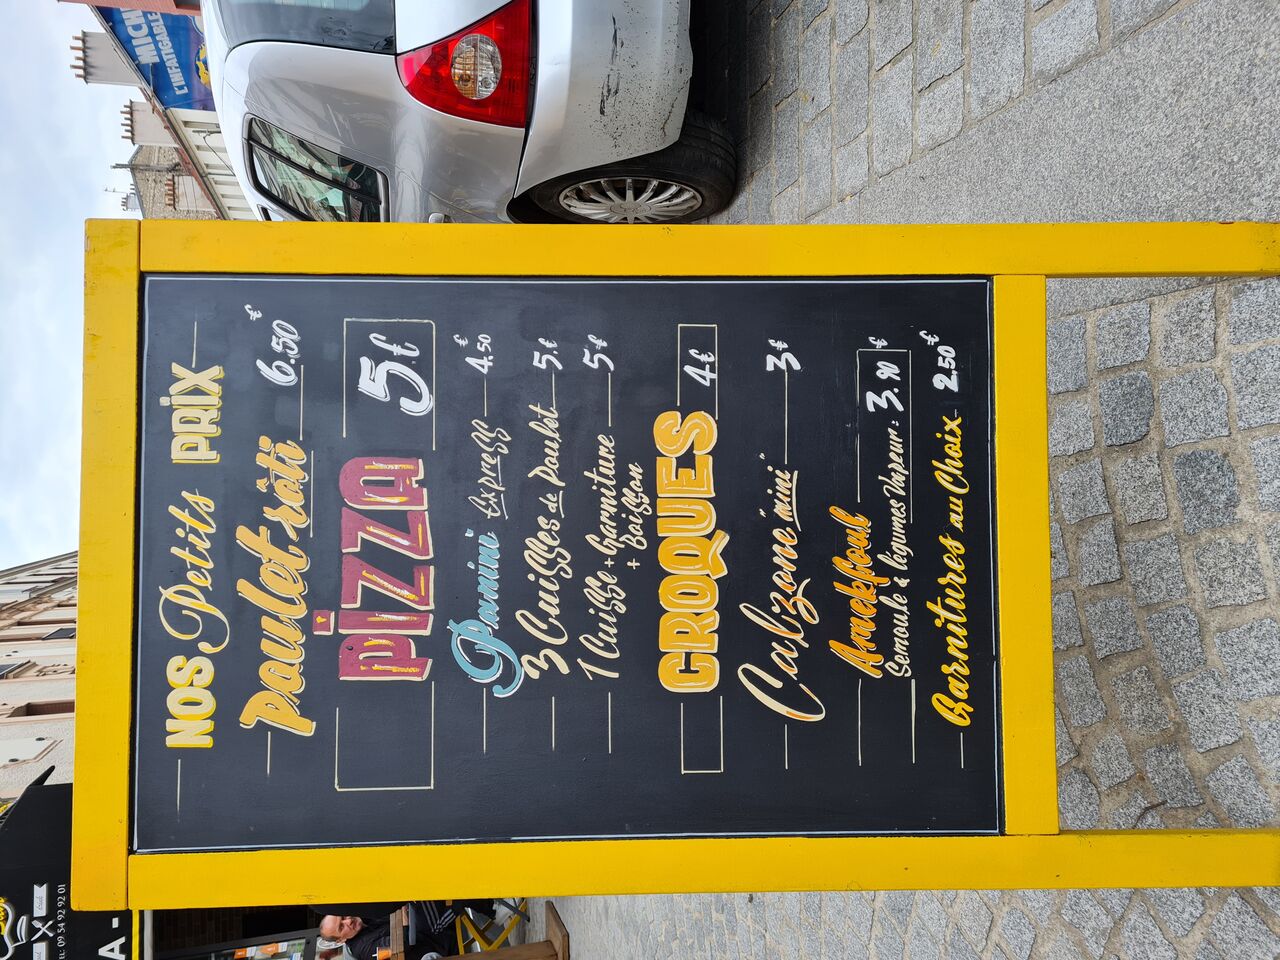 NOS Petits PRIX
poulet rôti 6.50€
PIZZA 5€
Panini Express 4.50€
3 Cuisses de Poulet 5.€
1 Cuisse + Garniture 5€
+ Boisson
CROQUES 4€
Calzone "mini" 3€
Amekfoul
Semoule & légumes Vapeur: 3.90€
Garnitures au Choix 2.50€
MICH
L'INFATIGABLE
09 54 92 92 01
A -